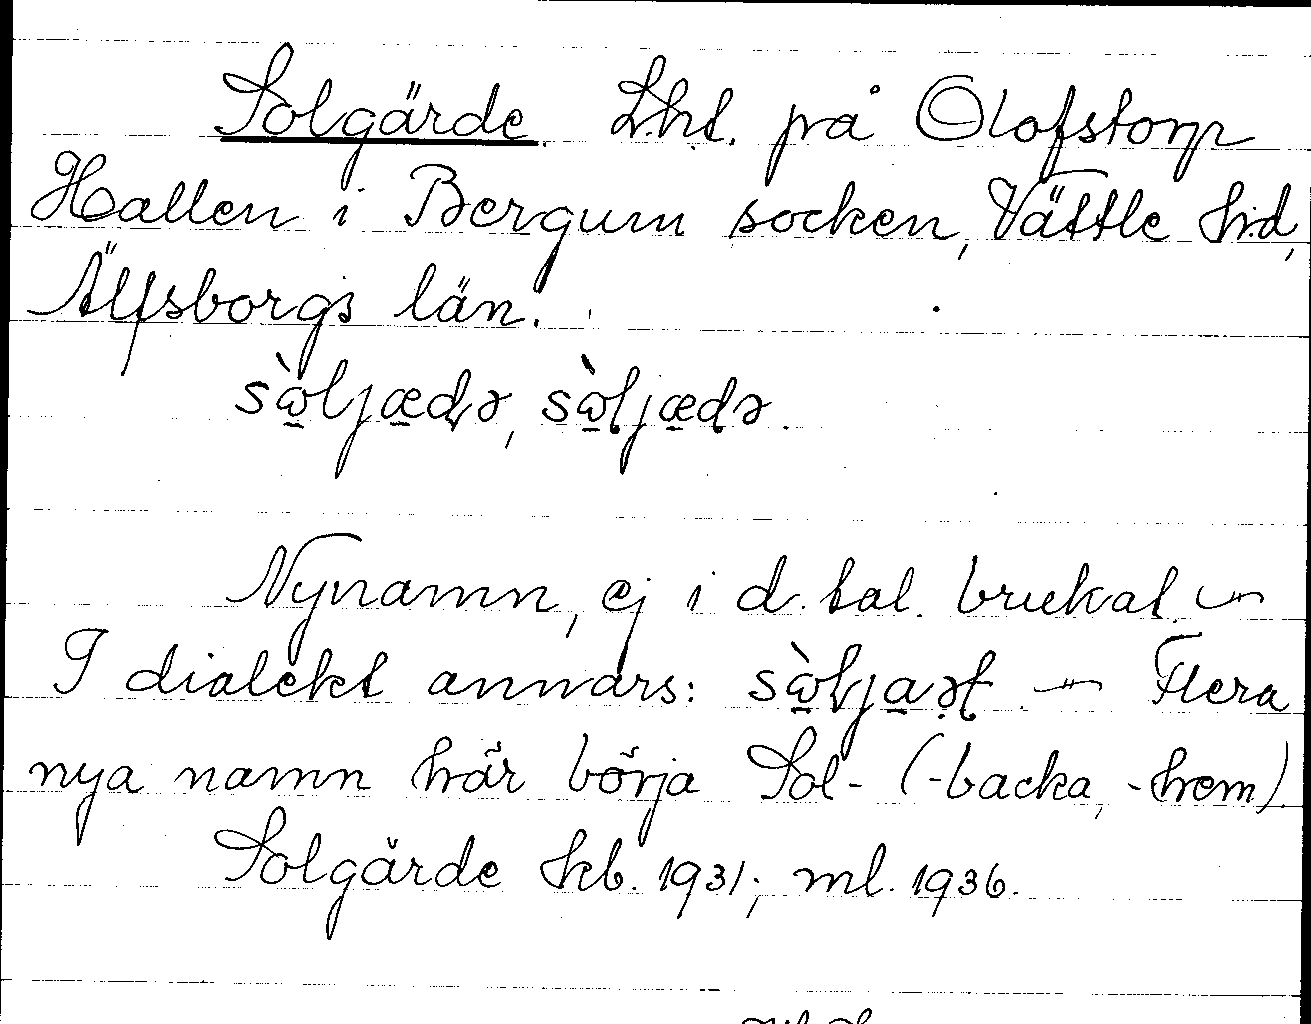 Solgärde. L.ht. på Olofstorp
Hallen i Bergum socken, Vättle hd,
Älfsborgs län.
sὼljædə, sὼljædə.
Nynamn, ej i d. tal. brukat. —
I dialekt annars: sὼljaət — Flera
nya namn här börja Sol- (-backa, -hem).
Solgärde Skb. 1931; ml. 1936.